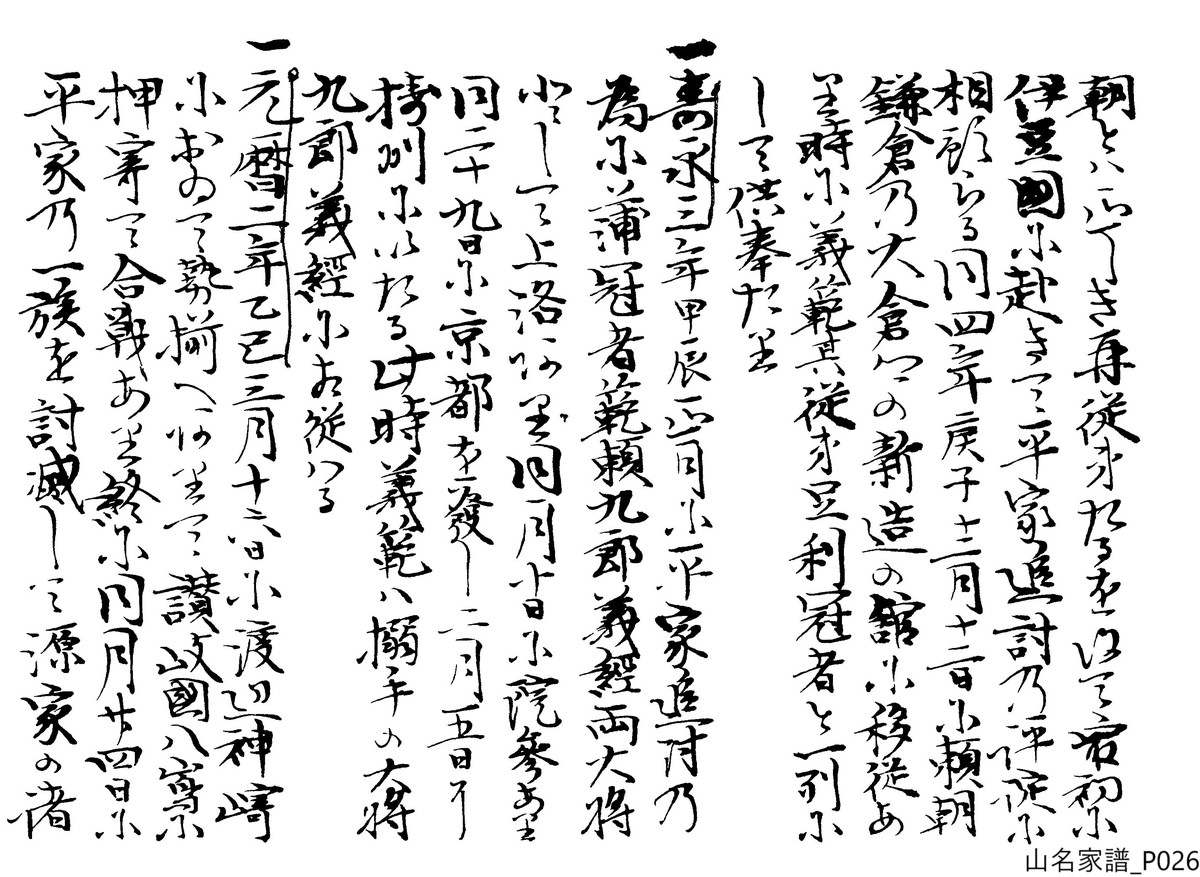 朝とハ正しき再従弟たるを以て最初に
伊豆國に赴きて平家追討乃評定に
相預らる同四年庚子十二月十二日に頼朝
鎌倉乃大倉郷の新造の舘に移徙あ
里時に義範其従弟足利冠者と一列に
して供奉たり
一壽永三年甲辰正月に平家追討乃
為に蒲冠者範頼九郎義經両大将
として上洛ありま同月廿日に院參あり
同二十九日に京都を發し二月五日に
摂州にいたる此時義範ハ搦手の大将
九郎義經に相従ハる
一元暦二年乙巳三月十六日に渡辺神崎
におゐて勢揃へありて讃岐國八嶌に
押寄て合戦あり終に同月廿四日に
平家乃一族を討滅して源家の諸
山名家譜_P026